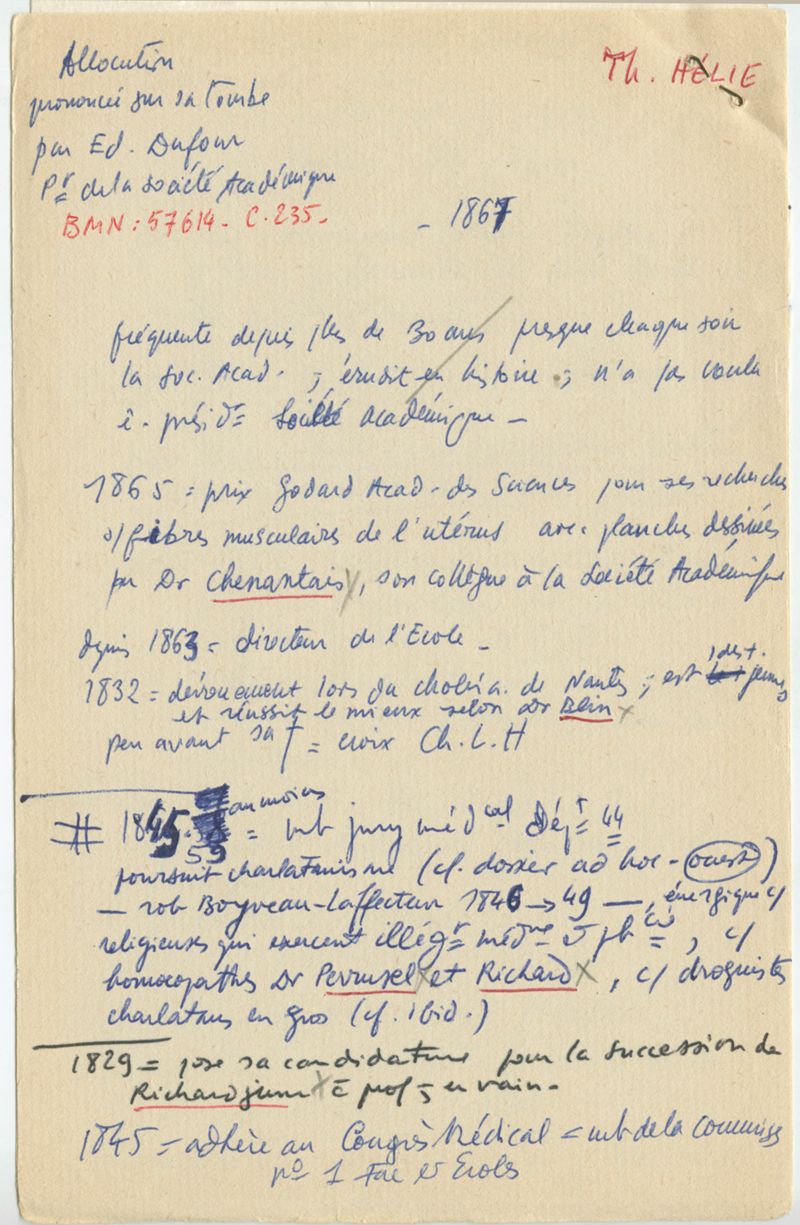 Allocution
prononcée sur sa tombe
par Ed. Dufour
Pr de la Société Académique
BMN : 57614 - C. 235 -
Th. HÉLIE
- 1867
fréquente depuis plus de 30 ans presque chaque soir
la Soc. Acad. ; érudit en histoire ; n'a pas voulu
ê. présidt Société Académique -
1865 = prix Godard Acad. des Sciences pour ses recherches
s/ fibres musculaires de l'utérus avec planches dessinées
par Dr Chenantais, son collègue à la Société Académique
depuis 1863 = directeur de l'Ecole -
1832 = dévouement lors du choléra de Nantes ; est jeune
et réussit le mieux selon Dr Blin
peu avant sa † = croix Ch. L. H
# 1845-59 au moins = mb jury médcal Dépt 44
poursuit charlatanisme (cf. dossier ad hoc - ouest)
- rob Boyveau-Laffecteur 1846 → 49 -, énergique c/
religieuses qui exercent illégt médne , c/
homoeopathes Dr Perrussel et Richard, c/ droguistes
charlatans en gros (cf. ibid.)
1829 = pose sa candidature pour la succession de
Richard jeune prof ; en vain -
1845 = adhère au Congrès Médical = mb de la commiss
no 1 Fac et Ecoles